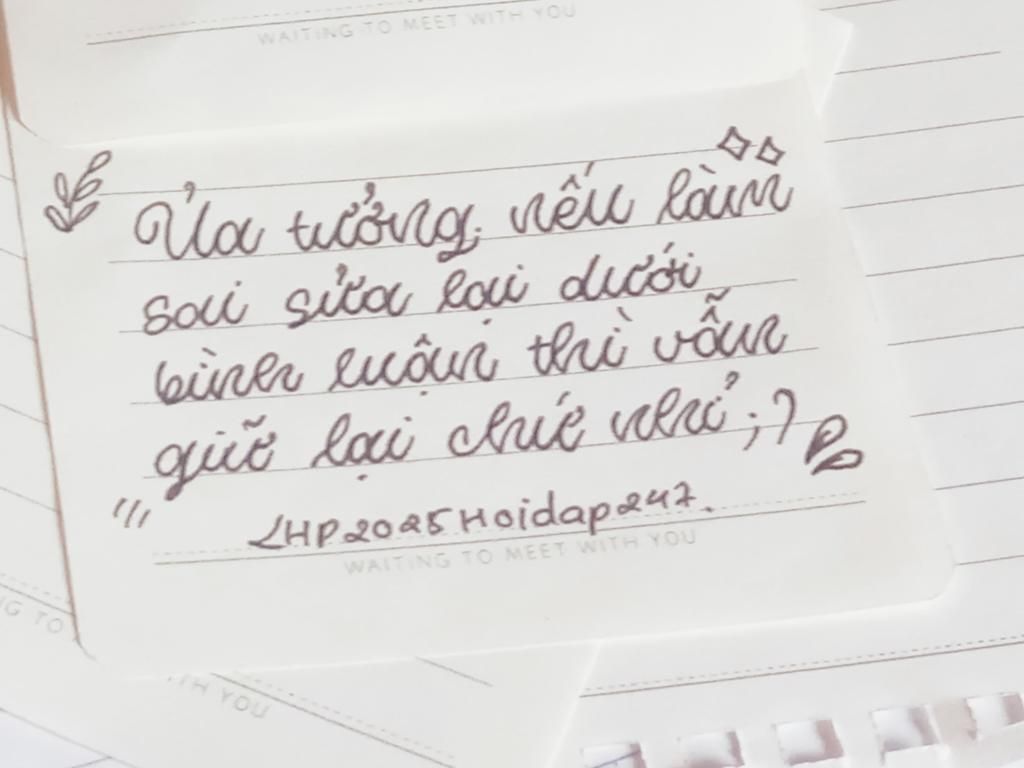 WAITING TO MEET WITH YOU
Ủa tưởng nếu làm
sai sửa lại dưới
bình luận thì vẫn
giữ lại chứ nhỉ ;)
LHP2025Hoidap247.
WAITING TO MEET WITH YOU
NG TO
TH YOU